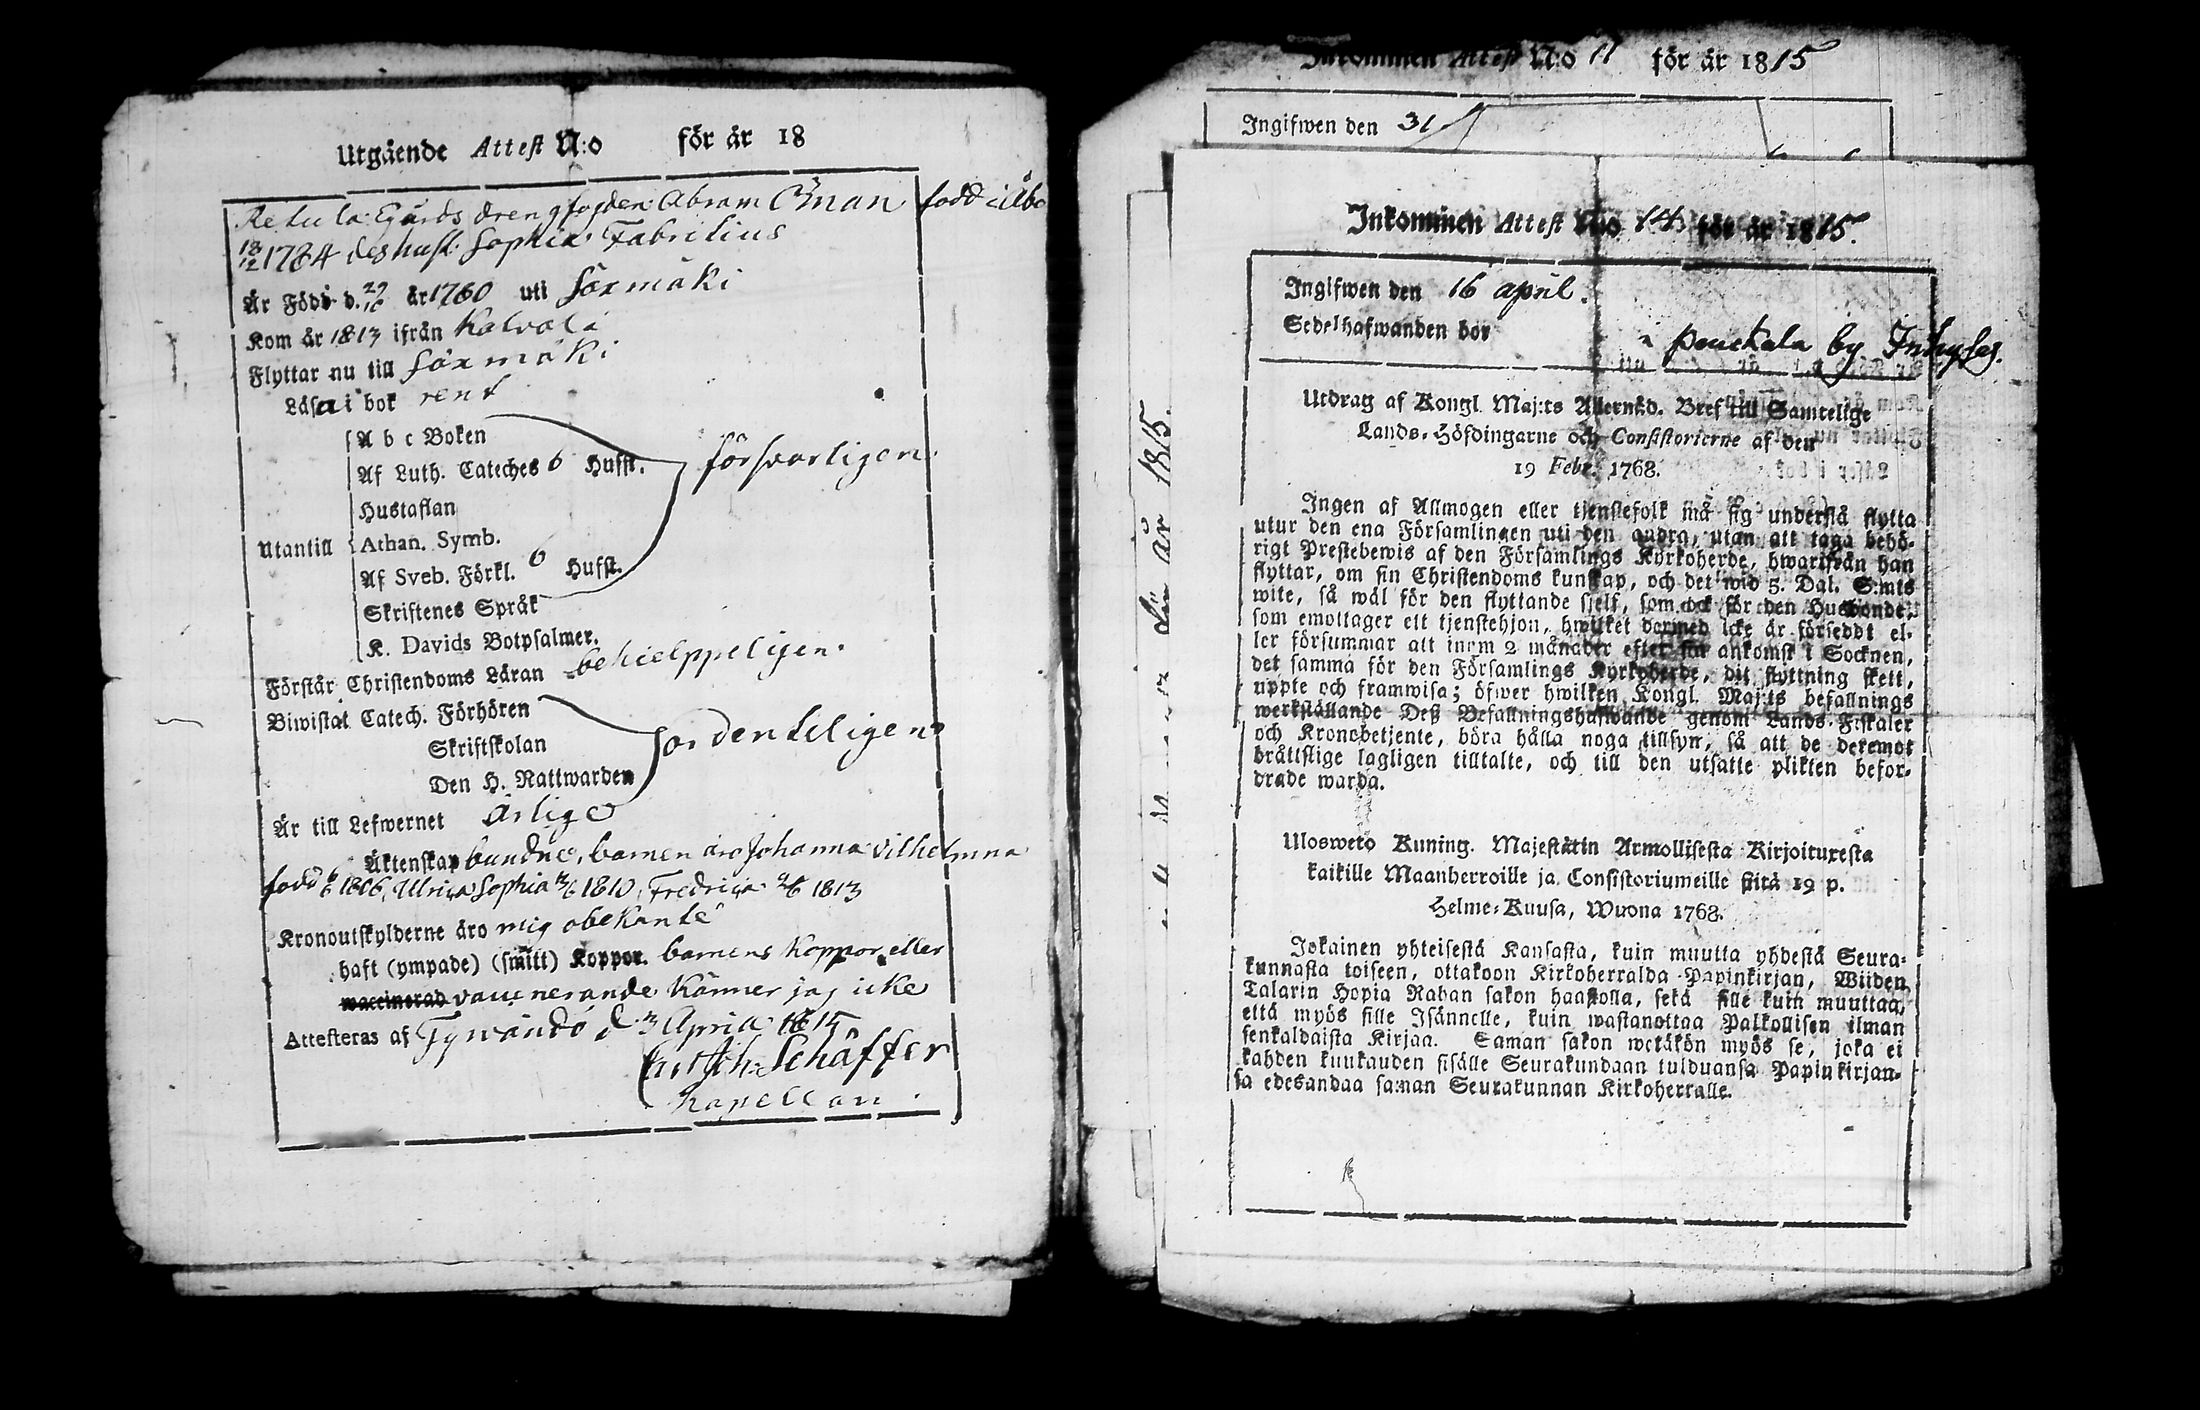 Utgående Attest N:o för år 18
Retula Egårds drengfogden Abram Öman född i Åbo
18/12 1784 des hust. Sophia Fabritius
Är Född d. 29/10 år 1780 uti Säxmäki
Kom år 1813 ifrån Kalvola
Flyttar nu till Säxmäki
Läsa i bok rent
A b c Boken
Af Luth. Cateches 6 Hufst. försvarligen.
Hustaflan
Utantill Athan. Symb.
Af Sveb. Förkl. 6 Hufst.
Skriftenes Språk
K. Davids Botpsalmer.
Förstår Christendoms Läran behielppeligen.
Biwistat Catech. Förhören
Skriftskolan ordenteligen
Den H. Nattwarden
Är till Lefwernet ärlige
Äktenskap bundne, barnen äro Johanna Vilhelmina
född 6/6 1806, Ulrica Sophia 1810, Fredrica 1813
Kronoutskylderne äro mig obekante
haft (ympade) (smitt) Koppor. barnens Koppor eller
waccinerad vaccinerande känner jag icke
Attesteras af Tyrvändö d. 3 April 1815
Joh. Schäffer
Kapellan.
Inkommen Attest N:o 11 för år 1815
Ingifwen den 31
Inkommen Attest N:o 14 för år 1815.
Ingifwen den 16 april.
Sedelhafwanden bor i Pouckala by
Utdrag af Kongl. Maj:ts Allernåd. Bref till Samtelige
Lands-Höfdingarne och Consistorierne af den
19 Febr. 1768.
Ingen af Allmogen eller tjenstefolk må sig understå flytta
utur den ena Församlingen uti den andra, utan att taga behö-
rigt Prestebewis af den Församlings Kyrkoherde, hwarifrån han
flyttar, om sin Christendoms kunskap, och det wid 5. Dal. S:mts
wite, så wäl för den flyttande sjelf, som ock för den Husbonde,
som emottager ett tjenstehjon, hwilket dermed icke är försedd el-
ler försummar att inom 2 månader efter sin ankomst i Socknen,
det samma för den Församlings Kyrkoherde, dit flyttning skett,
uppte och framwisa; öfwer hwilken Kongl. Maj:ts befallnings
werkställande Deß Befallningshafwande genom Lands-Fiskaler
och Kronobetjente, böra hålla noga tillsyn, så att de deremot
bråttslige lagligen tilltalte, och till den utsatte plikten befor-
drade warda.
Uloswero Kuning. Majestätin Armollisesta Kirjoituxesta
kaikille Maanherroille ja Consistoriumeille siitä 19 p.
Helme-Kuusa, Wuona 1768.
Jokainen yhteisestä Kansasta, kuin muutta yhdestä Seura-
kunnasta toiseen, ottakoon Kirkoherralda Papinkirjan, Wiiden
Talarin Hopia Rahan sakon haastolla, sekä sille kuin muuttaa,
että myös sille Isännelle, kuin wastanottaa Palkollisen ilman
senkaldaista Kirjaa. Saman sakon wetäkön myös se, joka ei
kahden kuukauden sisälle Seurakundaan tulduansa Papinkirjan-
sa edesandaa saman Seurakunnan Kirkoherralle.